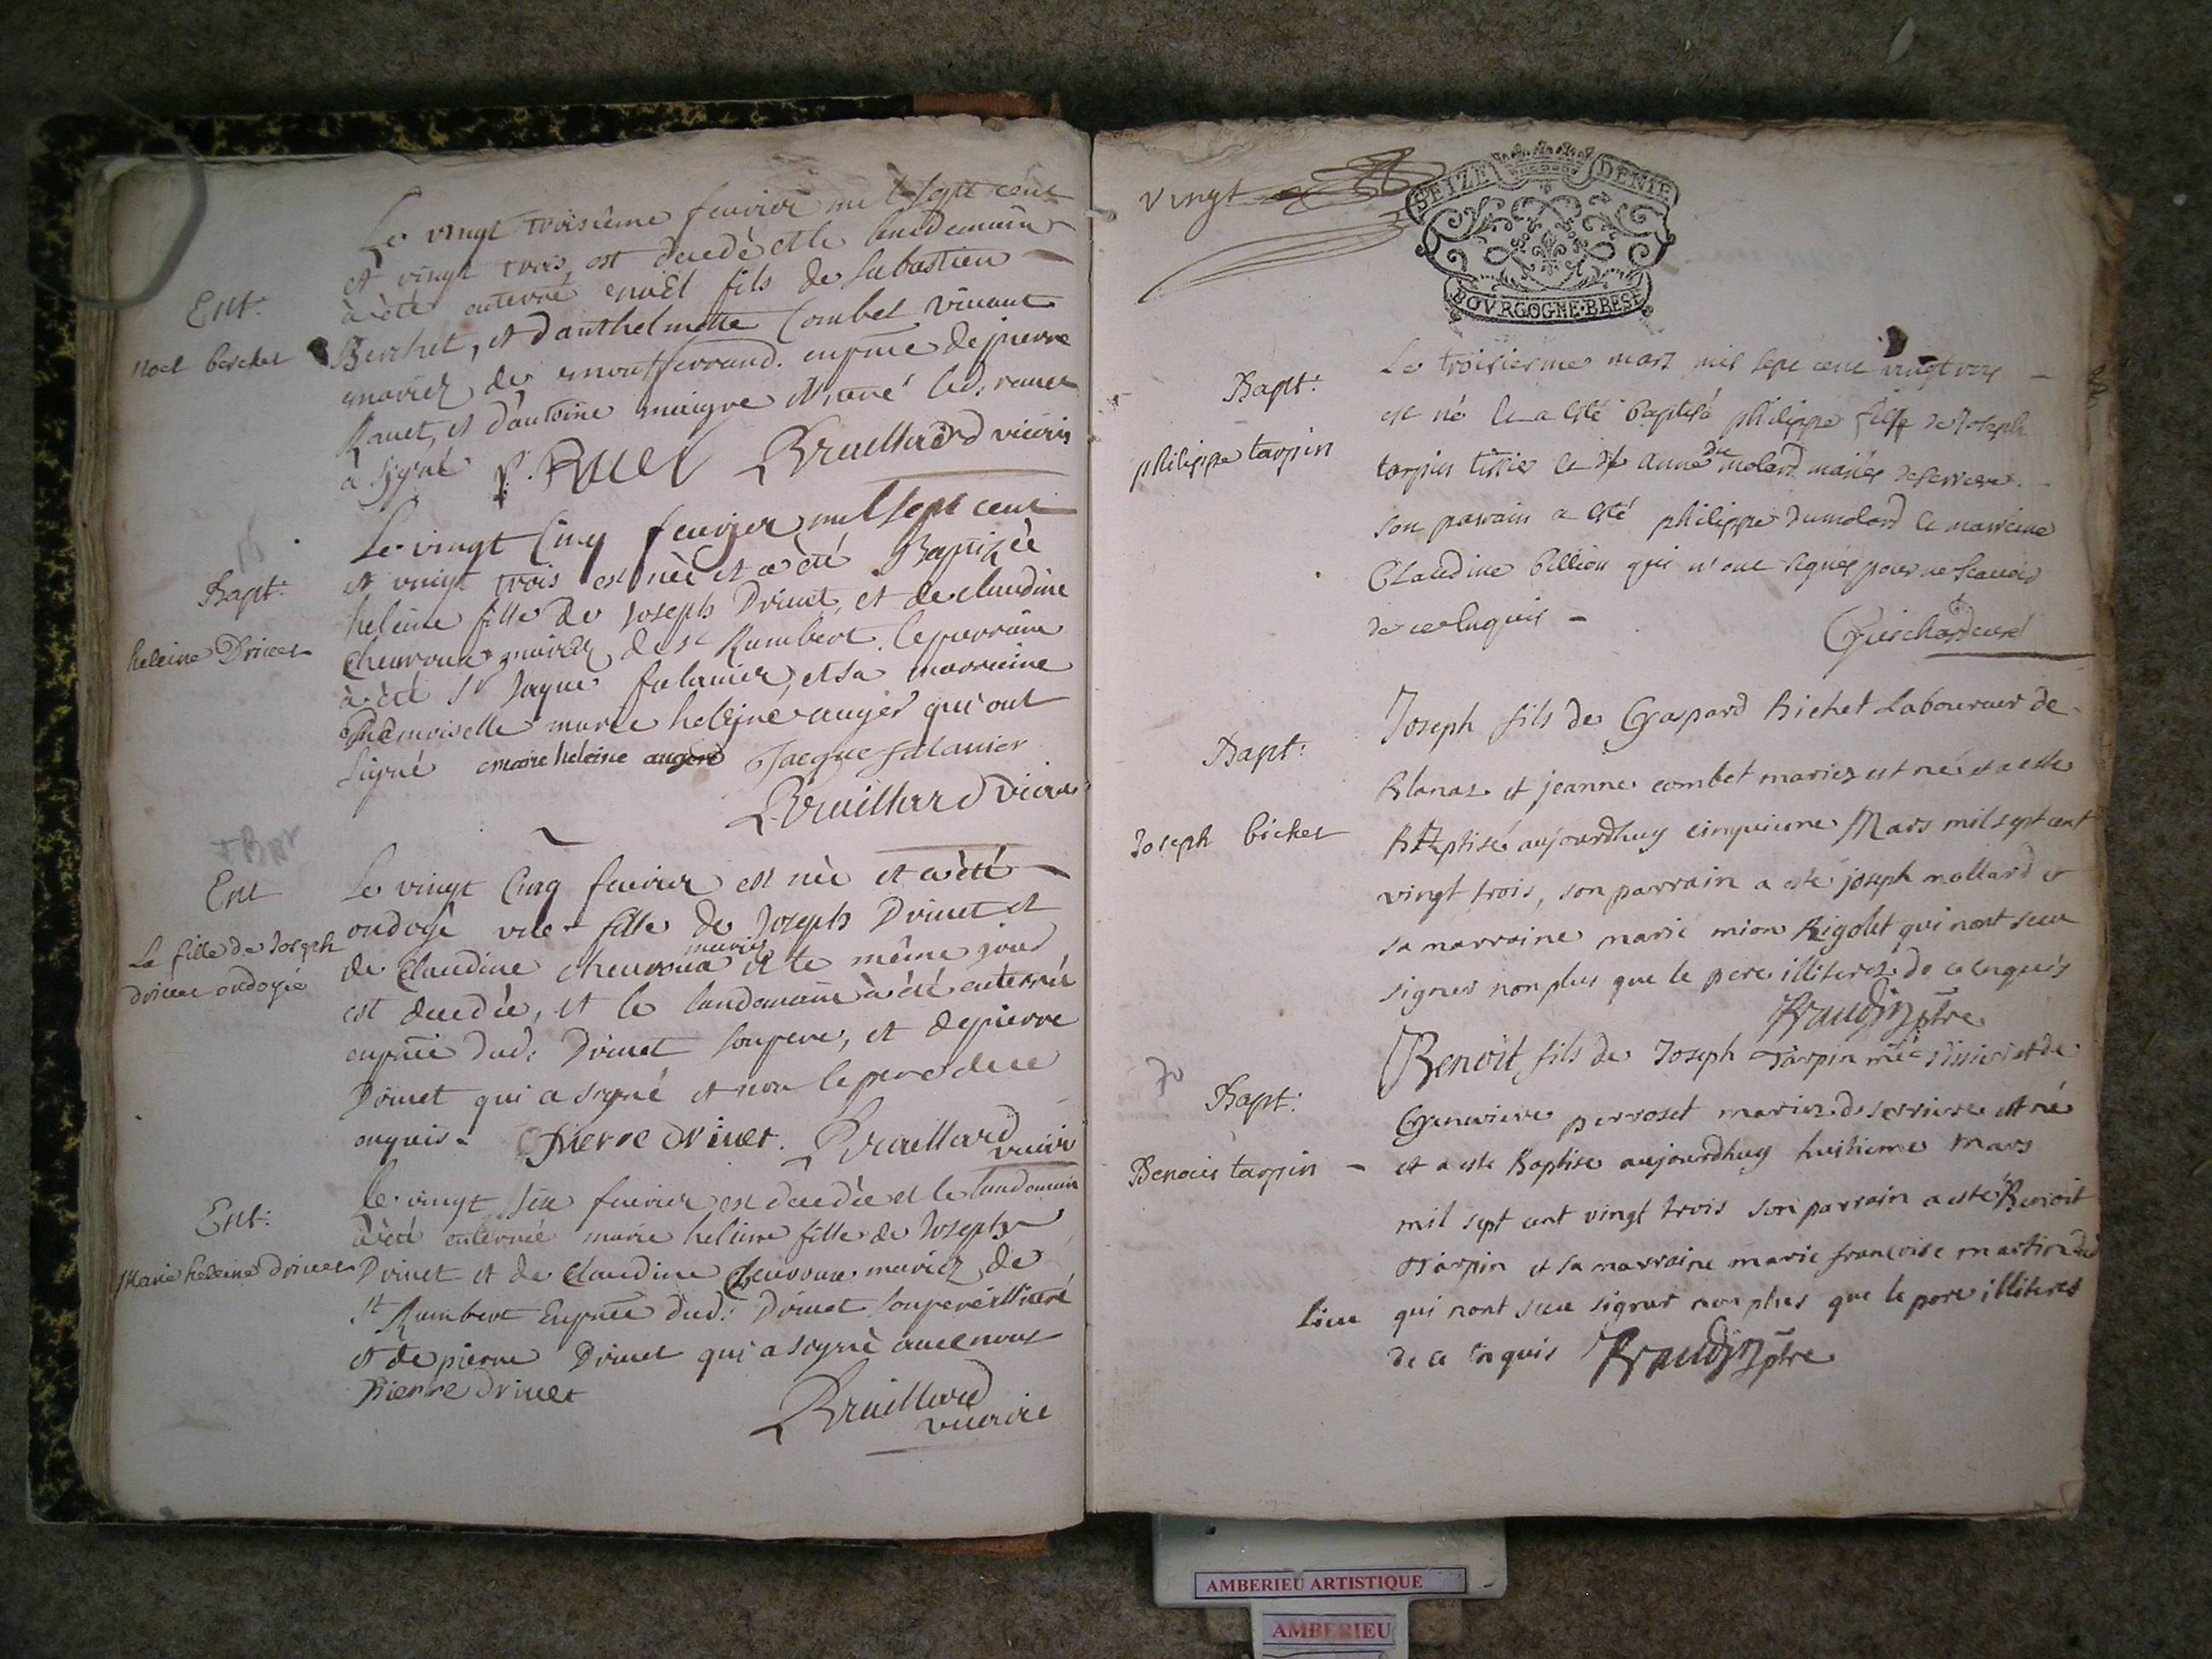 Ent:
noel berchet
Le vingt troisième feuvrier mil sept cent
et vingt trois, est decedé et le lendemain
à été enterré enoël fils de sebastien
Berchet, et d'anthelmette Combet vivant
mariez de montferrand. enpnce de pierre
Ravet, et d'antoine maigre illitteré led. ravet
à signé P. RAVET Braillard vicaire
Bapt:
heleine Drivet
Le vingt Cinq feuvrier mil sept cent
et vingt trois est néé et a été Baptizéé
heleine fille de Joseph Drivet, et de claudine
cheuvroux mariez de st Rambert. le parrain
à été sr Jaque falavier, et sa marreine
Mademoiselle marie heleine auger qui ont
signé marie heleine auger Jacque falavier
Braillard vicaire
Ent
La fille de Joseph
drivet ondoyée
Le vingt Cinq feuvrier est néé et a été
ondoyé une fille de Joseph Drivet et
de Claudine cheuvroux mariez et le même jour
est decedéé, et le landemain à été enterréé
enpnce dud: Drivet son pere, et de pierre
Drivet qui a signé et non le pere de ce
enquis. Pierre drivet. Braillard
vicaire
Ent:
Marie heleine drivet
le vingt six feuvrier est decedéé et le landemain
à été enterréé marie heleine fille de Joseph
Drivet et de Claudine Cheuvroux mariez de
st Rambert Enpnce dud: Drivet son pere illitteré
et de pierre Drivet qui a signé avec nous
Pierre drivet Braillard
vicaire
vingt
SEIZE DENIE
BOVRGOGNE·BRESE
Bapt:
philippe tarpin
Le troisiesme mars mil sept cent vingt trois
est né et a esté baptisé philippe fils de Joseph
tarpin tissier et de anne du molard mariés de serriere.
son parrain a esté philippe dumolard et marreine
Claudine billion qui n'ont signés pour ne scauoir
de ce enquis - Guichard curé
Bapt:
Joseph bichet
Joseph fils de Gaspard Bichet Laboureur de
Blanaz et jeanne combet mariez est né et a esté
Baptisé aujourdhuy cinquieme Mars mil sept cent
vingt trois, son parrain a esté joseph mollard et
sa marraine marie mion Rigolet qui nont sceu
signer non plus que le pere illiterez de ce enquis
Braudin ptre
Bapt:
Benoit tarpin -
Benoit fils de Joseph Tarpin mtre Tissier et de
Genevieve perroset mariez de serriere est né
et a esté Baptisé aujourdhuy huitieme Mars
mil sept cent vingt trois son parrain a esté Benoit
Tarpin et sa marraine marie francoise martin dud
lieu qui nont sceu signer non plus que le pere illiteres
de ce enquis Braudin ptre
AMBERIEU ARTISTIQUE
AMBERIEU